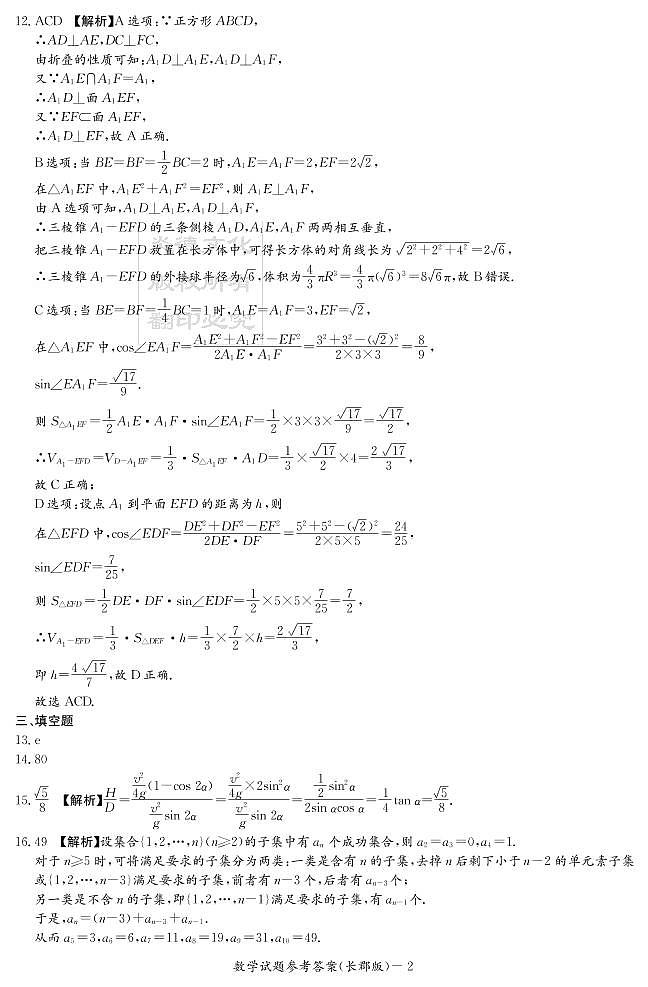 12. ACD 【解析】A选项:∵正方形ABCD,
∴AD⊥AE,DC⊥FC,
由折叠的性质可知:A₁D⊥A₁E,A₁D⊥A₁F,
又∵A₁E∩A₁F=A₁,
∴A₁D⊥面A₁EF,
又∵EF⊂面A₁EF,
∴A₁D⊥EF,故A正确.
B选项:当BE=BF=\frac{1}{2}BC=2时,A₁E=A₁F=2,EF=2√2,
在△A₁EF中,A₁E²+A₁F²=EF²,则A₁E⊥A₁F,
由A选项可知,A₁D⊥A₁E,A₁D⊥A₁F,
∴三棱锥A₁-EFD的三条侧棱A₁D,A₁E,A₁F两两相互垂直,
把三棱锥A₁-EFD放置在长方体中,可得长方体的对角线长为\sqrt{2²+2²+4²}=2√6,
∴三棱锥A₁-EFD的外接球半径为√6,体积为\frac{4}{3}πR³=\frac{4}{3}π(√6)³=8√6π,故B错误.
C选项:当BE=BF=\frac{1}{4}BC=1时,A₁E=A₁F=3,EF=√2,
在△A₁EF中,cos∠EA₁F=\frac{A₁E²+A₁F²-EF²}{2A₁E·A₁F}=\frac{3²+3²-(√2)²}{2×3×3}=\frac{8}{9},
sin∠EA₁F=\frac{√17}{9}.
则S_{△A₁EF}=\frac{1}{2}A₁E·A₁F·sin∠EA₁F=\frac{1}{2}×3×3×\frac{√17}{9}=\frac{√17}{2},
∴V_{A₁-EFD}=V_{D-A₁EF}=\frac{1}{3}·S_{△A₁EF}·A₁D=\frac{1}{3}×\frac{√17}{2}×4=\frac{2√17}{3},
故C正确;
D选项:设点A₁到平面EFD的距离为h,则
在△EFD中,cos∠EDF=\frac{DE²+DF²-EF²}{2DE·DF}=\frac{5²+5²-(√2)²}{2×5×5}=\frac{24}{25}.
sin∠EDF=\frac{7}{25},
则S_{△EFD}=\frac{1}{2}DE·DF·sin∠EDF=\frac{1}{2}×5×5×\frac{7}{25}=\frac{7}{2},
∴V_{A₁-EFD}=\frac{1}{3}·S_{△DEF}·h=\frac{1}{3}×\frac{7}{2}×h=\frac{2√17}{3},
即h=\frac{4√17}{7},故D正确.
故选ACD.
三、填空题
13. e
14. 80
15. \frac{√5}{8} 【解析】\frac{H}{D}=\frac{\frac{v²}{4g}(1-cos 2α)}{\frac{v²}{g}sin 2α}=\frac{\frac{v²}{4g}×2sin²α}{\frac{v²}{g}sin 2α}=\frac{\frac{1}{2}sin²α}{2sin αcos α}=\frac{1}{4}tan α=\frac{√5}{8}.
16. 49 【解析】设集合{1,2,…,n}(n≥2)的子集中有aₙ个成功集合,则a₂=a₃=0,a₄=1.
对于n≥5时,可将满足要求的子集分为两类:一类是含有n的子集,去掉n后剩下小于n-2的单元素子集
或{1,2,…,n-3}满足要求的子集,前者有n-3个,后者有aₙ₋₃个;
另一类是不含n的子集,即{1,2,…,n-1}满足要求的子集,有aₙ₋₁个.
于是,aₙ=(n-3)+aₙ₋₃+aₙ₋₁.
从而a₅=3,a₆=6,a₇=11,a₈=19,a₉=31,a₁₀=49.
数学试题参考答案(长郡版)-2